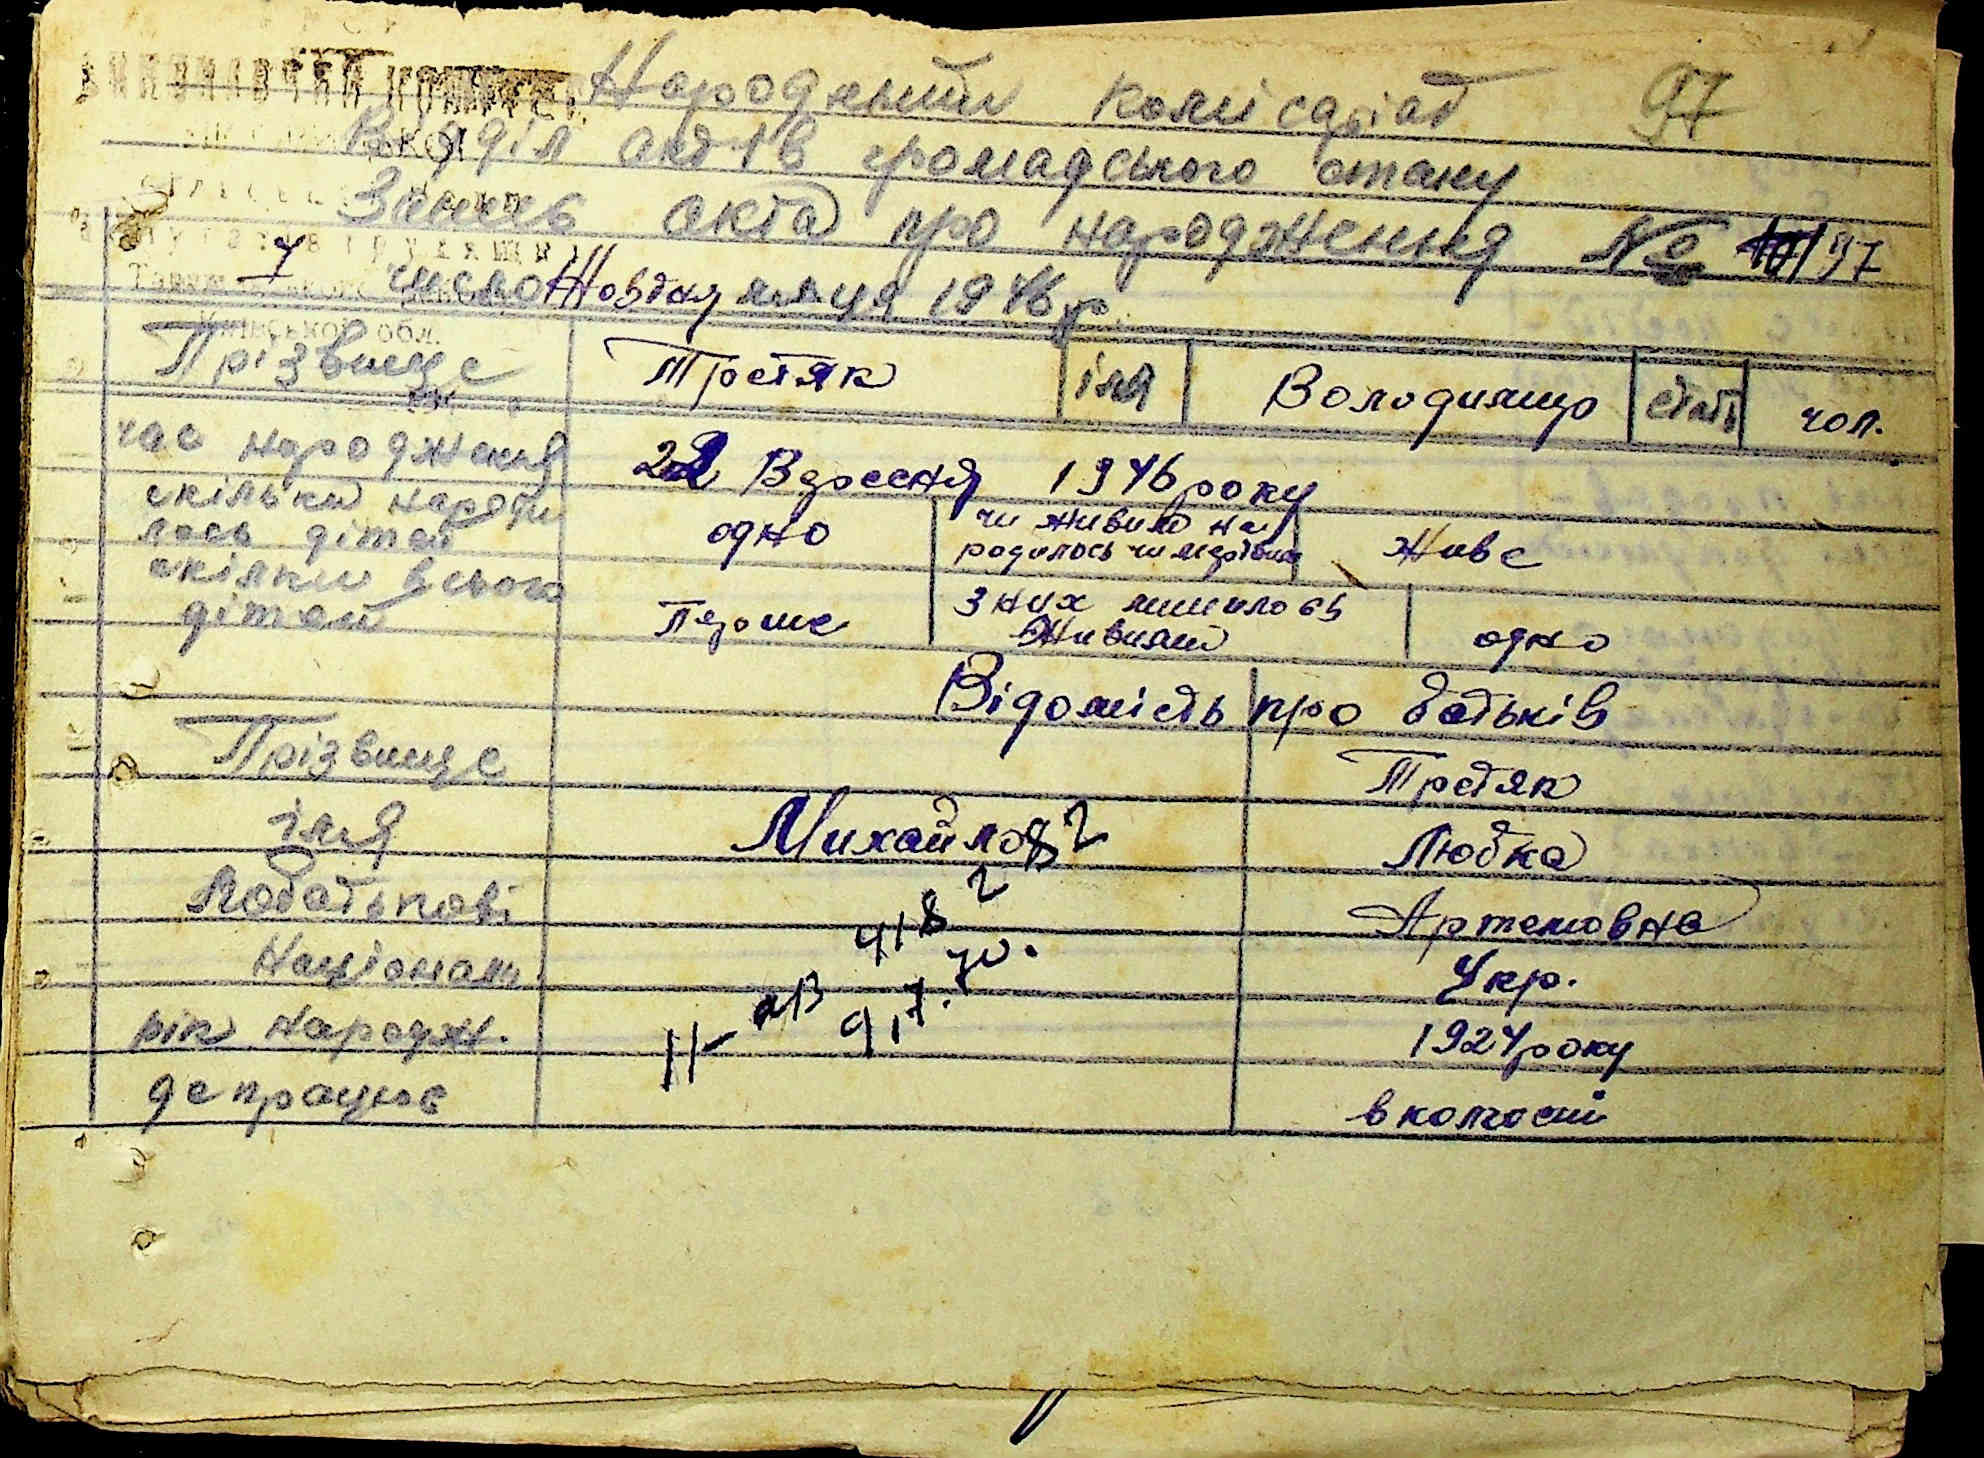 97
Народный комісаріат
Відділ актів громадського стану
Запись акта про народження № 97
7 число Жовтня місяця 1946 р
Київської обл.
Прізвище Третяк імя Володимир стать чол.
час народження 22 Вересня 1946 року
скільки народи
лось дітей одно чи живило на
родилось чи мертвим живе
скілки всього
дітей Перше з них лишилось
живими одно
Відомість про батьків
Прізвище Третяк
імя Михайлов Любка
Побатькові Артемовна
Національ. Укр.
рік народж. 1924 року
де працює в колгоспі